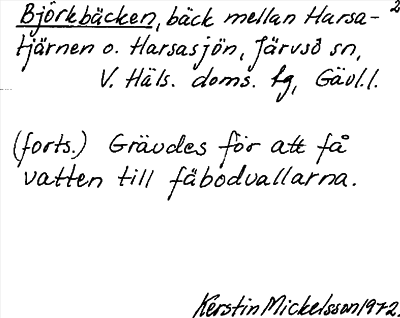 2
Björkbäcken, bäck mellan Harsa-
tjärnen o. Harsasjön, Järvsö sn,
V. Häls. doms. tg, Gävl.l.
(forts.) Grävdes för att få
vatten till fäbodvallarna.
Kerstin Mickelsson 1972.